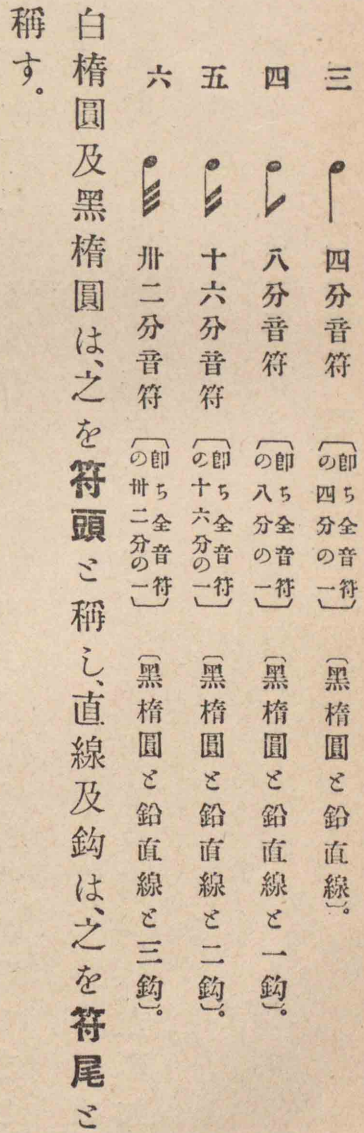 三 四分音符 〔即ち全音符の四分の一〕 〔黑楕圓と鉛直線〕。
四 八分音符 〔即ち全音符の八分の一〕 〔黑楕圓と鉛直線と一鈎〕。
五 十六分音符 〔即ち全音符の十六分の一〕 〔黑楕圓と鉛直線と二鈎〕。
六 卅二分音符 〔即ち全音符の卅二分の一〕 〔黑楕圓と鉛直線と三鈎〕。
白楕圓及黑楕圓は、之を符頭と稱し、直線及鈎は、之を符尾と
稱す。